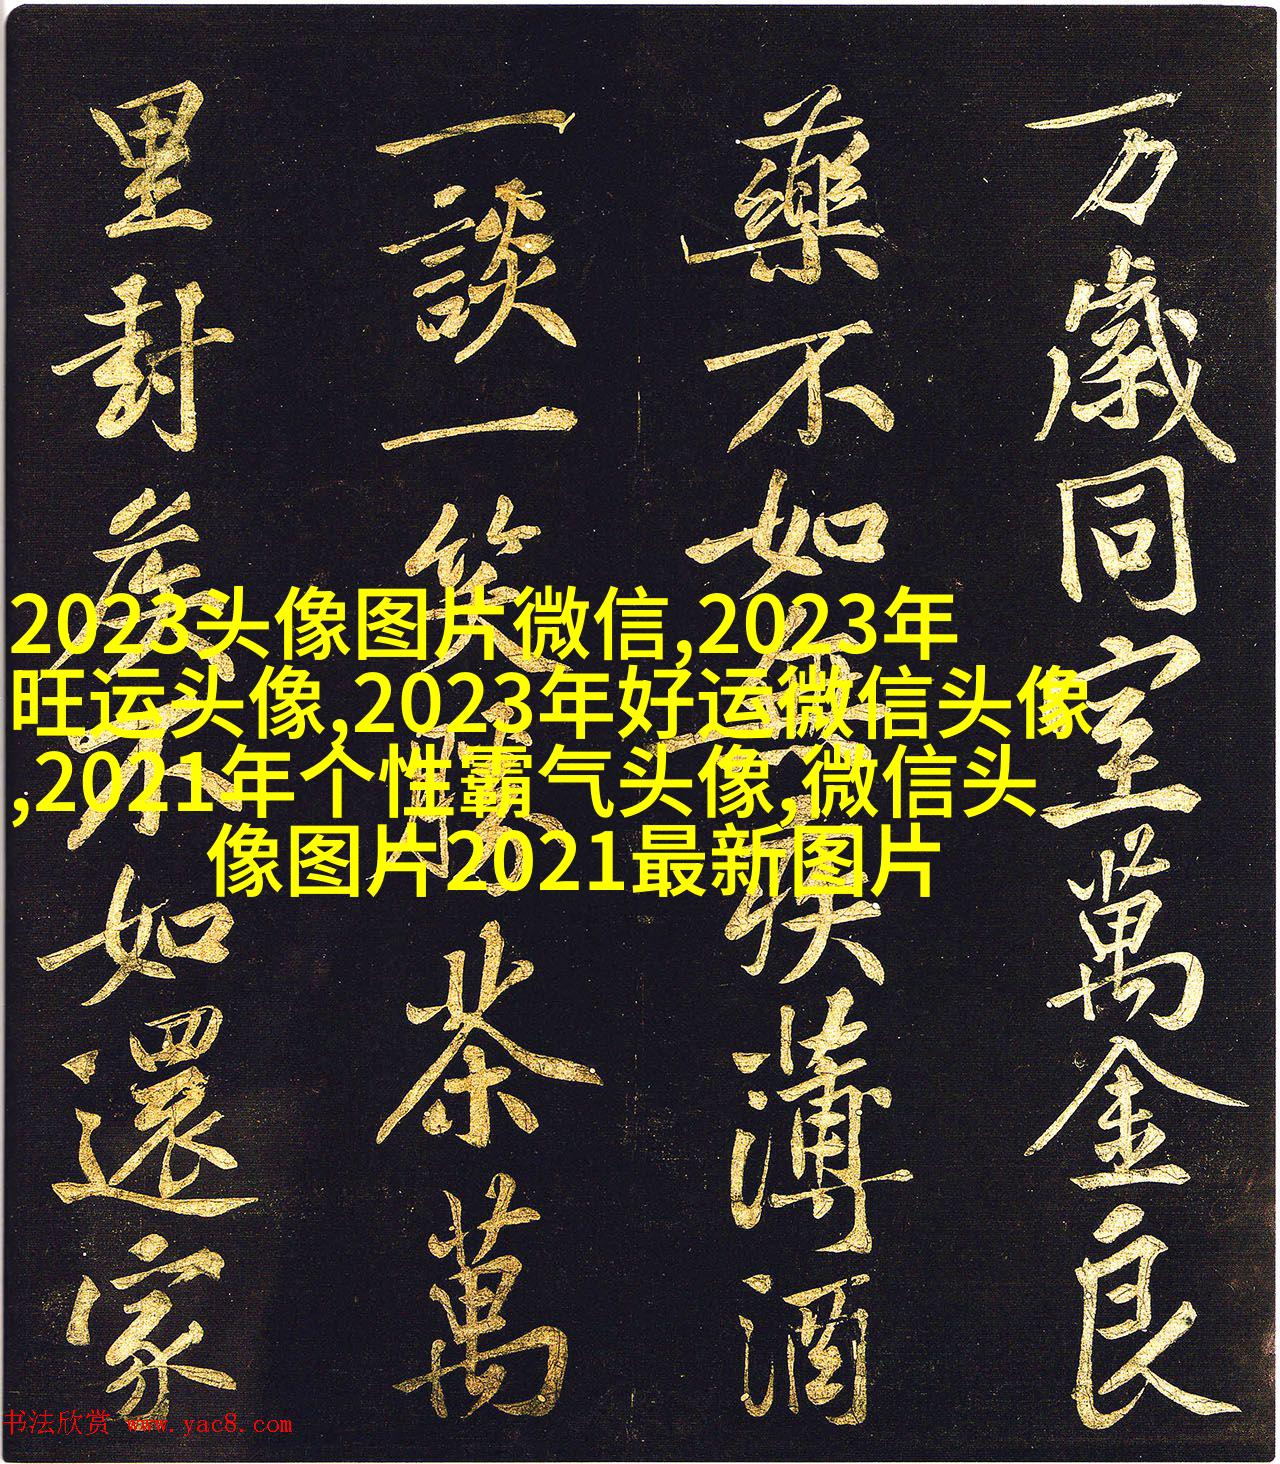 万歲同室萬金良
藥不如無疾薄酒
一談一笑勝茶萬
里封侯不如還家
2023头像图片微信,2023年
旺运头像,2023年好运微信头像
,2021年个性霸气头像,微信头
像图片2021最新图片
书法欣赏 www.yac8.com